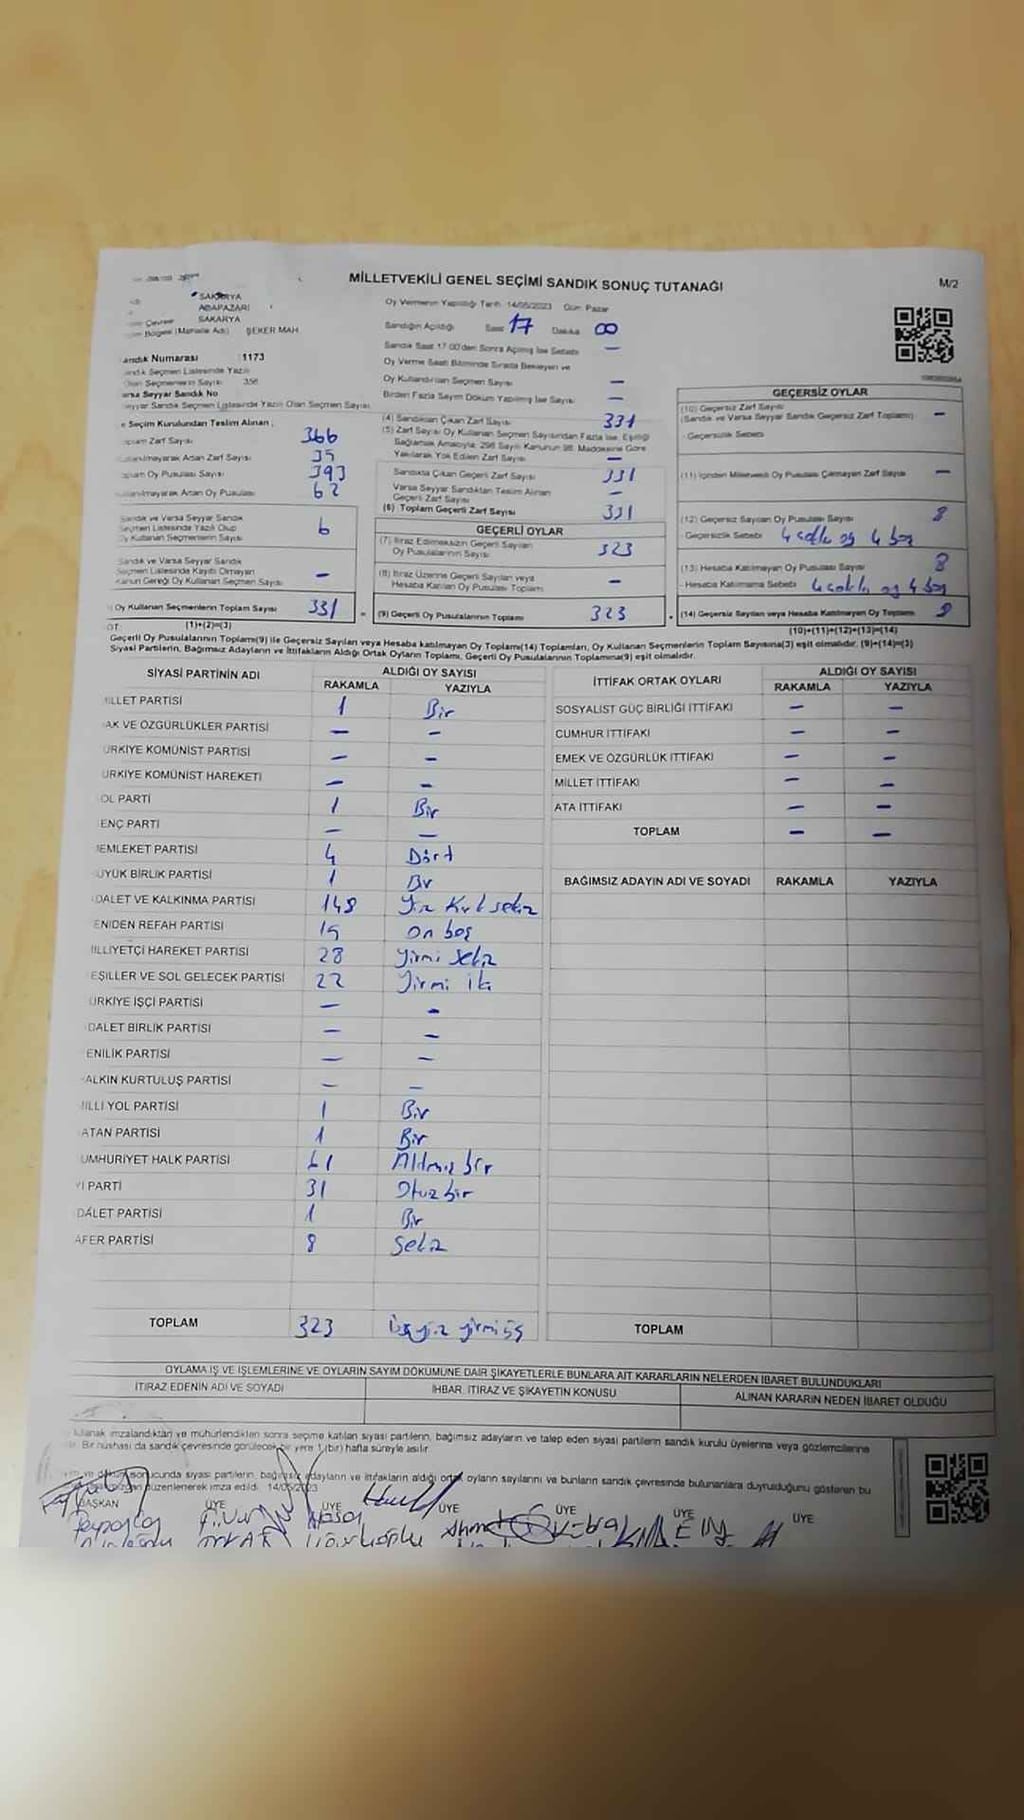 MİLLETVEKİLİ GENEL SEÇİMİ SANDIK SONUÇ TUTANAĞI
M/2
SAKARYA
ADAPAZARI
SAKARYA
Bölgesi (Mahalle Adı) ŞEKER MAH
Oy Vermenin Yapıldığı Tarih 14/05/2023 Gün Pazar
Sandığın Açıldığı Saat 17 Dakika 00
Sandık Saat 17.00'den Sonra Açılmış İse Sebebi —
Oy Verme Saati Bitiminde Sırada Bekleyen ve
Oy Kullandırılan Seçmen Sayısı —
Birden Fazla Sayım Döküm Yapılmış İse Sayısı —
andık Numarası 1173
andık Seçmen Listesinde Yazılı
Olan Seçmenlerin Sayısı 356
arsa Seyyar Sandık No
eyyar Sandık Seçmen Listesinde Yazılı Olan Seçmen Sayısı
e Seçim Kurulundan Teslim Alınan;
oplam Zarf Sayısı 366
ullanılmayarak Artan Zarf Sayısı 35
oplam Oy Pusulası Sayısı 393
ullanılmayarak Artan Oy Pusulası 62
Sandık ve Varsa Seyyar Sandık
Seçmen Listesinde Yazılı Olup
Oy Kullanan Seçmenlerin Sayısı
Sandık ve Varsa Seyyar Sandık
Seçmen Listesinde Kayıtlı Olmayan
Kanun Gereği Oy Kullanan Seçmen Sayısı —
Oy Kullanan Seçmenlerin Toplam Sayısı 331
(1)+(2)=(3)
(4) Sandıktan Çıkan Zarf Sayısı 331
(5) Zarf Sayısı Oy Kullanan Seçmen Sayısından Fazla İse, Eşitliği
Sağlamak Amacıyla, 298 Sayılı Kanunun 98. Maddesine Göre
Yakılarak Yok Edilen Zarf Sayısı —
Sandıkta Çıkan Geçerli Zarf Sayısı 331
Varsa Seyyar Sandıktan Teslim Alınan
Geçerli Zarf Sayısı —
(6) Toplam Geçerli Zarf Sayısı 331
GEÇERLİ OYLAR
(7) İtiraz Edilmeksizin Geçerli Sayılan
Oy Pusulalarının Sayısı 323
(8) İtiraz Üzerine Geçerli Sayılan veya
Hesaba Katılan Oy Pusulası Toplamı —
(9) Geçerli Oy Pusulalarının Toplamı 323
GEÇERSİZ OYLAR
(10) Geçersiz Zarf Sayısı
(Sandık ve Varsa Seyyar Sandık Geçersiz Zarf Toplamı) —
Geçersizlik Sebebi
(11) İçinden Milletvekili Oy Pusulası Çıkmayan Zarf Sayısı —
(12) Geçersiz Sayılan Oy Pusulası Sayısı 8
Geçersizlik Sebebi 4 oy 4 boş
(13) Hesaba Katılmayan Oy Pusulası Sayısı 8
Hesaba Katılmama Sebebi 4 oy 4 boş
(14) Geçersiz Sayılan veya Hesaba Katılmayan Oy Toplamı 8
(10)+(11)+(12)+(13)=(14)
OT:
Geçerli Oy Pusulalarının Toplamı(9) ile Geçersiz Sayılan veya Hesaba katılmayan Oy Toplamı(14) Toplamları, Oy Kullanan Seçmenlerin Toplam Sayısına(3) eşit olmalıdır. (9)+(14)=(3)
Siyasi Partilerin, Bağımsız Adayların ve İttifakların Aldığı Ortak Oyların Toplamı, Geçerli Oy Pusulalarının Toplamına(9) eşit olmalıdır.
SİYASİ PARTİNİN ADI ALDIĞI OY SAYISI
RAKAMLA YAZIYLA
İLLET PARTİSİ 1 Bir
AK VE ÖZGÜRLÜKLER PARTİSİ — —
ÜRKİYE KOMÜNİST PARTİSİ — —
ÜRKİYE KOMÜNİST HAREKETİ — —
OL PARTİ 1 Bir
ENÇ PARTİ — —
EMLEKET PARTİSİ 4 Dört
ÜYÜK BİRLİK PARTİSİ 1 Bir
DALET VE KALKINMA PARTİSİ 148 Yüz Kırk sekiz
ENİDEN REFAH PARTİSİ 15 on beş
İLLİYETÇİ HAREKET PARTİSİ 28 yirmi sekiz
EŞİLLER VE SOL GELECEK PARTİSİ 22 Yirmi iki
ÜRKİYE İŞÇİ PARTİSİ — —
DALET BİRLİK PARTİSİ — —
ENİLİK PARTİSİ — —
ALKIN KURTULUŞ PARTİSİ — —
İLLİ YOL PARTİSİ 1 Bir
ATAN PARTİSİ 1 Bir
UMHURİYET HALK PARTİSİ 61 Altmış bir
Yİ PARTİ 31 Otuz bir
DALET PARTİSİ 1 Bir
AFER PARTİSİ 8 Sekiz
TOPLAM 323 üçyüz yirmi üç
İTTİFAK ORTAK OYLARI ALDIĞI OY SAYISI
RAKAMLA YAZIYLA
SOSYALİST GÜÇ BİRLİĞİ İTTİFAKI — —
CUMHUR İTTİFAKI — —
EMEK VE ÖZGÜRLÜK İTTİFAKI — —
MİLLET İTTİFAKI — —
ATA İTTİFAKI — —
TOPLAM — —
BAĞIMSIZ ADAYIN ADI VE SOYADI RAKAMLA YAZIYLA
TOPLAM
OYLAMA İŞ VE İŞLEMLERİNE VE OYLARIN SAYIM DÖKÜMÜNE DAİR ŞİKAYETLERLE BUNLARA AİT KARARLARIN NELERDEN İBARET BULUNDUKLARI
İTİRAZ EDENİN ADI VE SOYADI İHBAR, İTİRAZ VE ŞİKAYETİN KONUSU ALINAN KARARIN NEDEN İBARET OLDUĞU
imzalandıktan ve mühürlendikten sonra seçime katılan siyasi partilerin, bağımsız adayların ve talep eden siyasi partilerin sandık kurulu üyelerine veya gözlemcilerine
Bir nüshası da sandık çevresinde görülecek bir yere 1 (bir) hafta süreyle asılır.
ve döküm sonucunda siyasi partilerin, bağımsız adayların ve ittifakların aldığı ortak oyların sayılarını ve bunların sandık çevresinde bulunanlara duyrulduğunu gösteren bu
düzenlenerek imza edildi. 14/05/2023
BAŞKAN ÜYE ÜYE ÜYE ÜYE ÜYE ÜYE
Ahmet